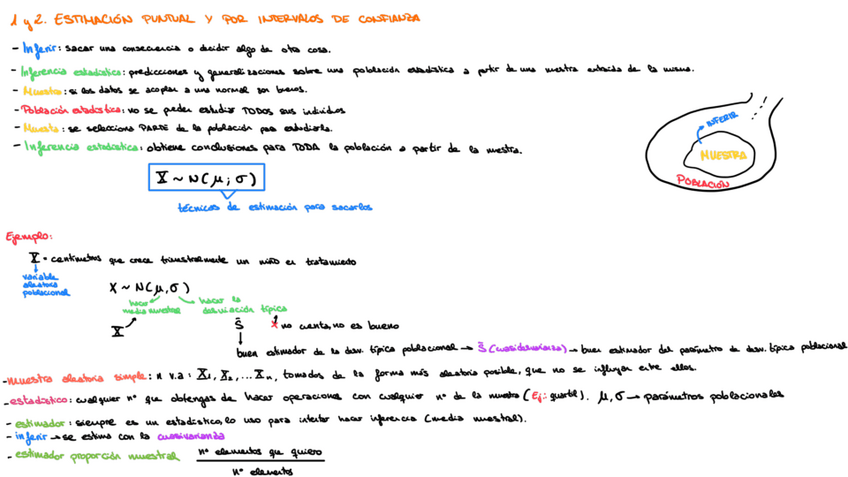 1 y 2. ESTIMACIÓN PUNTUAL Y POR INTERVALOS DE CONFIANZA
- Inferir: sacar una consecuencia o decidir algo de otra cosa.
- Inferencia estadística: predicciones y generalizaciones sobre una población estadística a partir de una muestra extraída de la misma.
- Muestra: si los datos se acoplan a una normal son buenos.
- Población estadística: no se pueden estudiar TODOS sus individuos
- Muestra: se selecciona PARTE de la población para estudiarla.
- Inferencia estadística: obtiene conclusiones para TODA la población a partir de la muestra.
INFERIR
MUESTRA
POBLACIÓN
X ~ N(μ; σ)
técnicas de estimación para sacarlos
Ejemplo:
X = centímetros que crece trimestralmente un niño en tratamiento
variable
aleatoria
poblacional
X ~ N(μ, σ)
hacer
media muestral
hacer la
desviación típica
X̄
S̃
no cuenta, no es bueno
buen estimador de la desv. típica poblacional → S̃ (cuasidesvianza) → buen estimador del parámetro de desv. típica poblacional
- muestra aleatoria simple: n v.a: X1, X2, ... Xn, tomados de la forma más aleatoria posible, que no se influyan entre ellos.
- estadístico: cualquier nº que obtengas de hacer operaciones con cualquier nº de la muestra (Ej: quartil). μ, σ → parámetros poblacionales
- estimador: siempre es un estadístico, lo uso para intentar hacer inferencia (media muestral).
- inferir → se estima con la cuasivarianza
- estimador proporción muestral nº elementos que quiero
nº elementos